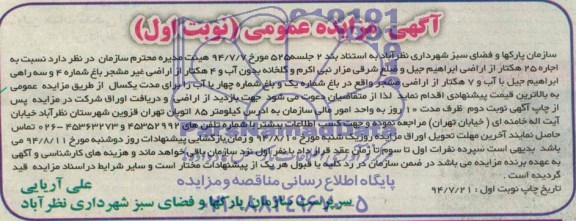 آگهی مزایده عمومی (نوبت اول)
سازمان پارکها و فضای سبز شهرداری نظرآباد به استناد بند ۲ جلسه ۵۲۵ مورخ ۹۴/۷/۷ هیئت مدیره محترم سازمان در نظر دارد نسبت به
اجاره ۲۵ هکتار از اراضی ابراهیم جیل و ضلع شرقی مزار نبی اکرم و گلخانه بدون آب و ۴ هکتار از اراضی غیر مشجر باغ شماره ۴ و سه راهی
ابراهیم جیل با آب و ۷ هکتار از اراضی مشجر واقع در باغ شماره یک و باغ شماره چهار با آب را برای مدت یکسال از طریق مزایده عمومی
به بالاترین قیمت پیشنهادی اقدام نماید لذا از متقاضیان دعوت می شود جهت بازدید از اراضی و دریافت اوراق شرکت در مزایده پس
از چاپ آگهی نوبت دوم ظرف مدت ۱۰ روز به واحد امور مالی سازمان به آدرس کیلومتر ۸۵ اتوبان تهران قزوین شهرستان نظرآباد خیابان
آیت اله خامنه ای (خیابان تهران) مراجعه نموده و جهت کسب اطلاعات بیشتر با شماره تلفن های ۴۵۳۵۲۹۹۲ و ۴۵۳۶۳۲۷۳-۰۲۶ تماس
حاصل نمایند آخرین مهلت تحویل اوراق مزایده روز یکشنبه مورخ ۹۴/۸/۱۰ و زمان بازگشایی پیشنهادات روز دوشنبه مورخ ۹۴/۸/۱۱ می
باشد بدیهی است سپرده نفرات اول تا سوم تا زمان عقد قرارداد با نفر اول نزد سازمان باقی خواهد ماند و هزینه های کارشناسی و آگهی
به عهده برنده مزایده می باشد در ضمن سازمان در رد کلیه یا قبول هر یک از پیشنهادات مختار است و سایر شرایط در اسناد مزایده قید
گردیده است.
تاریخ چاپ نوبت اول: ۹۴/۷/۲۱
پایگاه اطلاع رسانی مناقصه و مزایده
علی آریایی
سرپرست سازمان پارکها و فضای سبز شهرداری نظرآباد